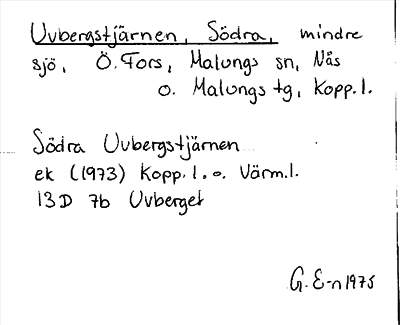 Uvbergstjärnen, Södra, mindre
sjö, Ö. Fors, Malungs sn, Nås
o. Malungs tg, Kopp. l.
Södra Uvbergstjärnen
ek (1973) Kopp. l. o. Värm. l.
13D 7b Uvberget
G. E-n 1975